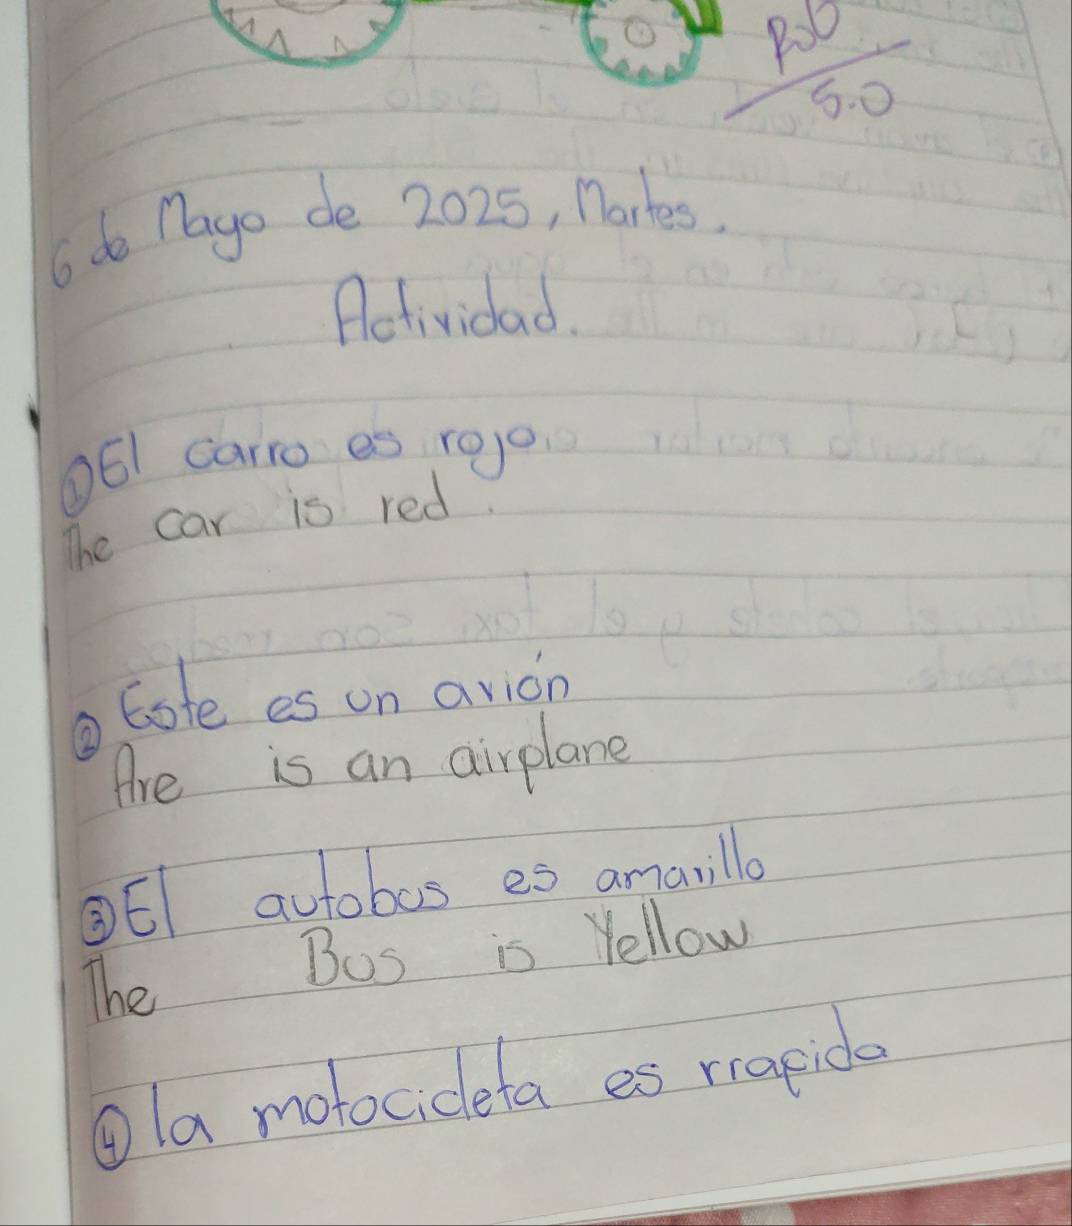 5.0
6 de Mayo de 2025, Martes.
Actividad.
① El carro es rojo
The car is red.
② Este es un avión
Are is an airplane
③ El autobus es amarillo
The Bus is Yellow
④ la motocicleta es rrapida